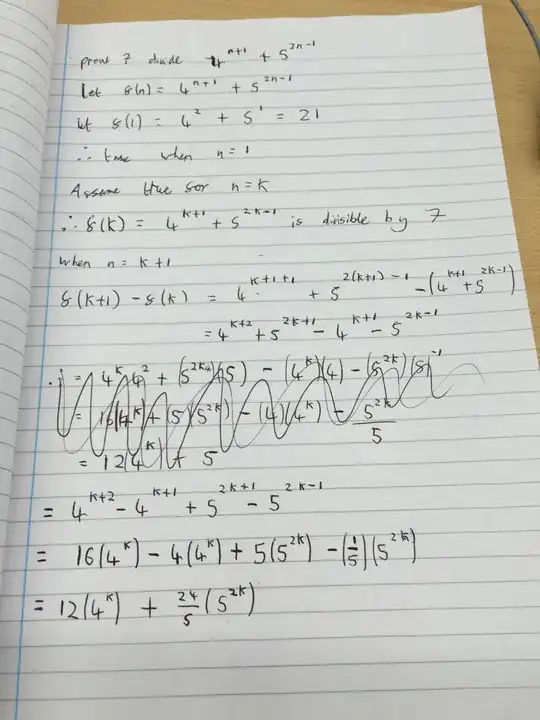 prove 7 divide 4^{n+1} + 5^{2n-1}
Let f(n) = 4^{n+1} + 5^{2n-1}
Let f(1) = 4^2 + 5^1 = 21
∴ true when n = 1
Assume true for n = k
∴ f(k) = 4^{k+1} + 5^{2k-1} is divisible by 7
when n = k+1
f(k+1) - f(k) = 4^{k+1+1} + 5^{2(k+1)-1} - (4^{k+1} + 5^{2k-1})
= 4^{k+2} + 5^{2k+1} - 4^{k+1} - 5^{2k-1}
= 4^k 4^2 + (5^{2k})(5) - (4^k)(4) - (5^{2k})(5)^{-1}
= 16(4^k) + (5)(5^{2k}) - (4)(4^k) - \frac{5^{2k}}{5}
= 12(4^k) + 5
= 4^{k+2} - 4^{k+1} + 5^{2k+1} - 5^{2k-1}
= 16(4^k) - 4(4^k) + 5(5^{2k}) - (\frac{1}{5})(5^{2k})
= 12(4^k) + \frac{24}{5}(5^{2k})